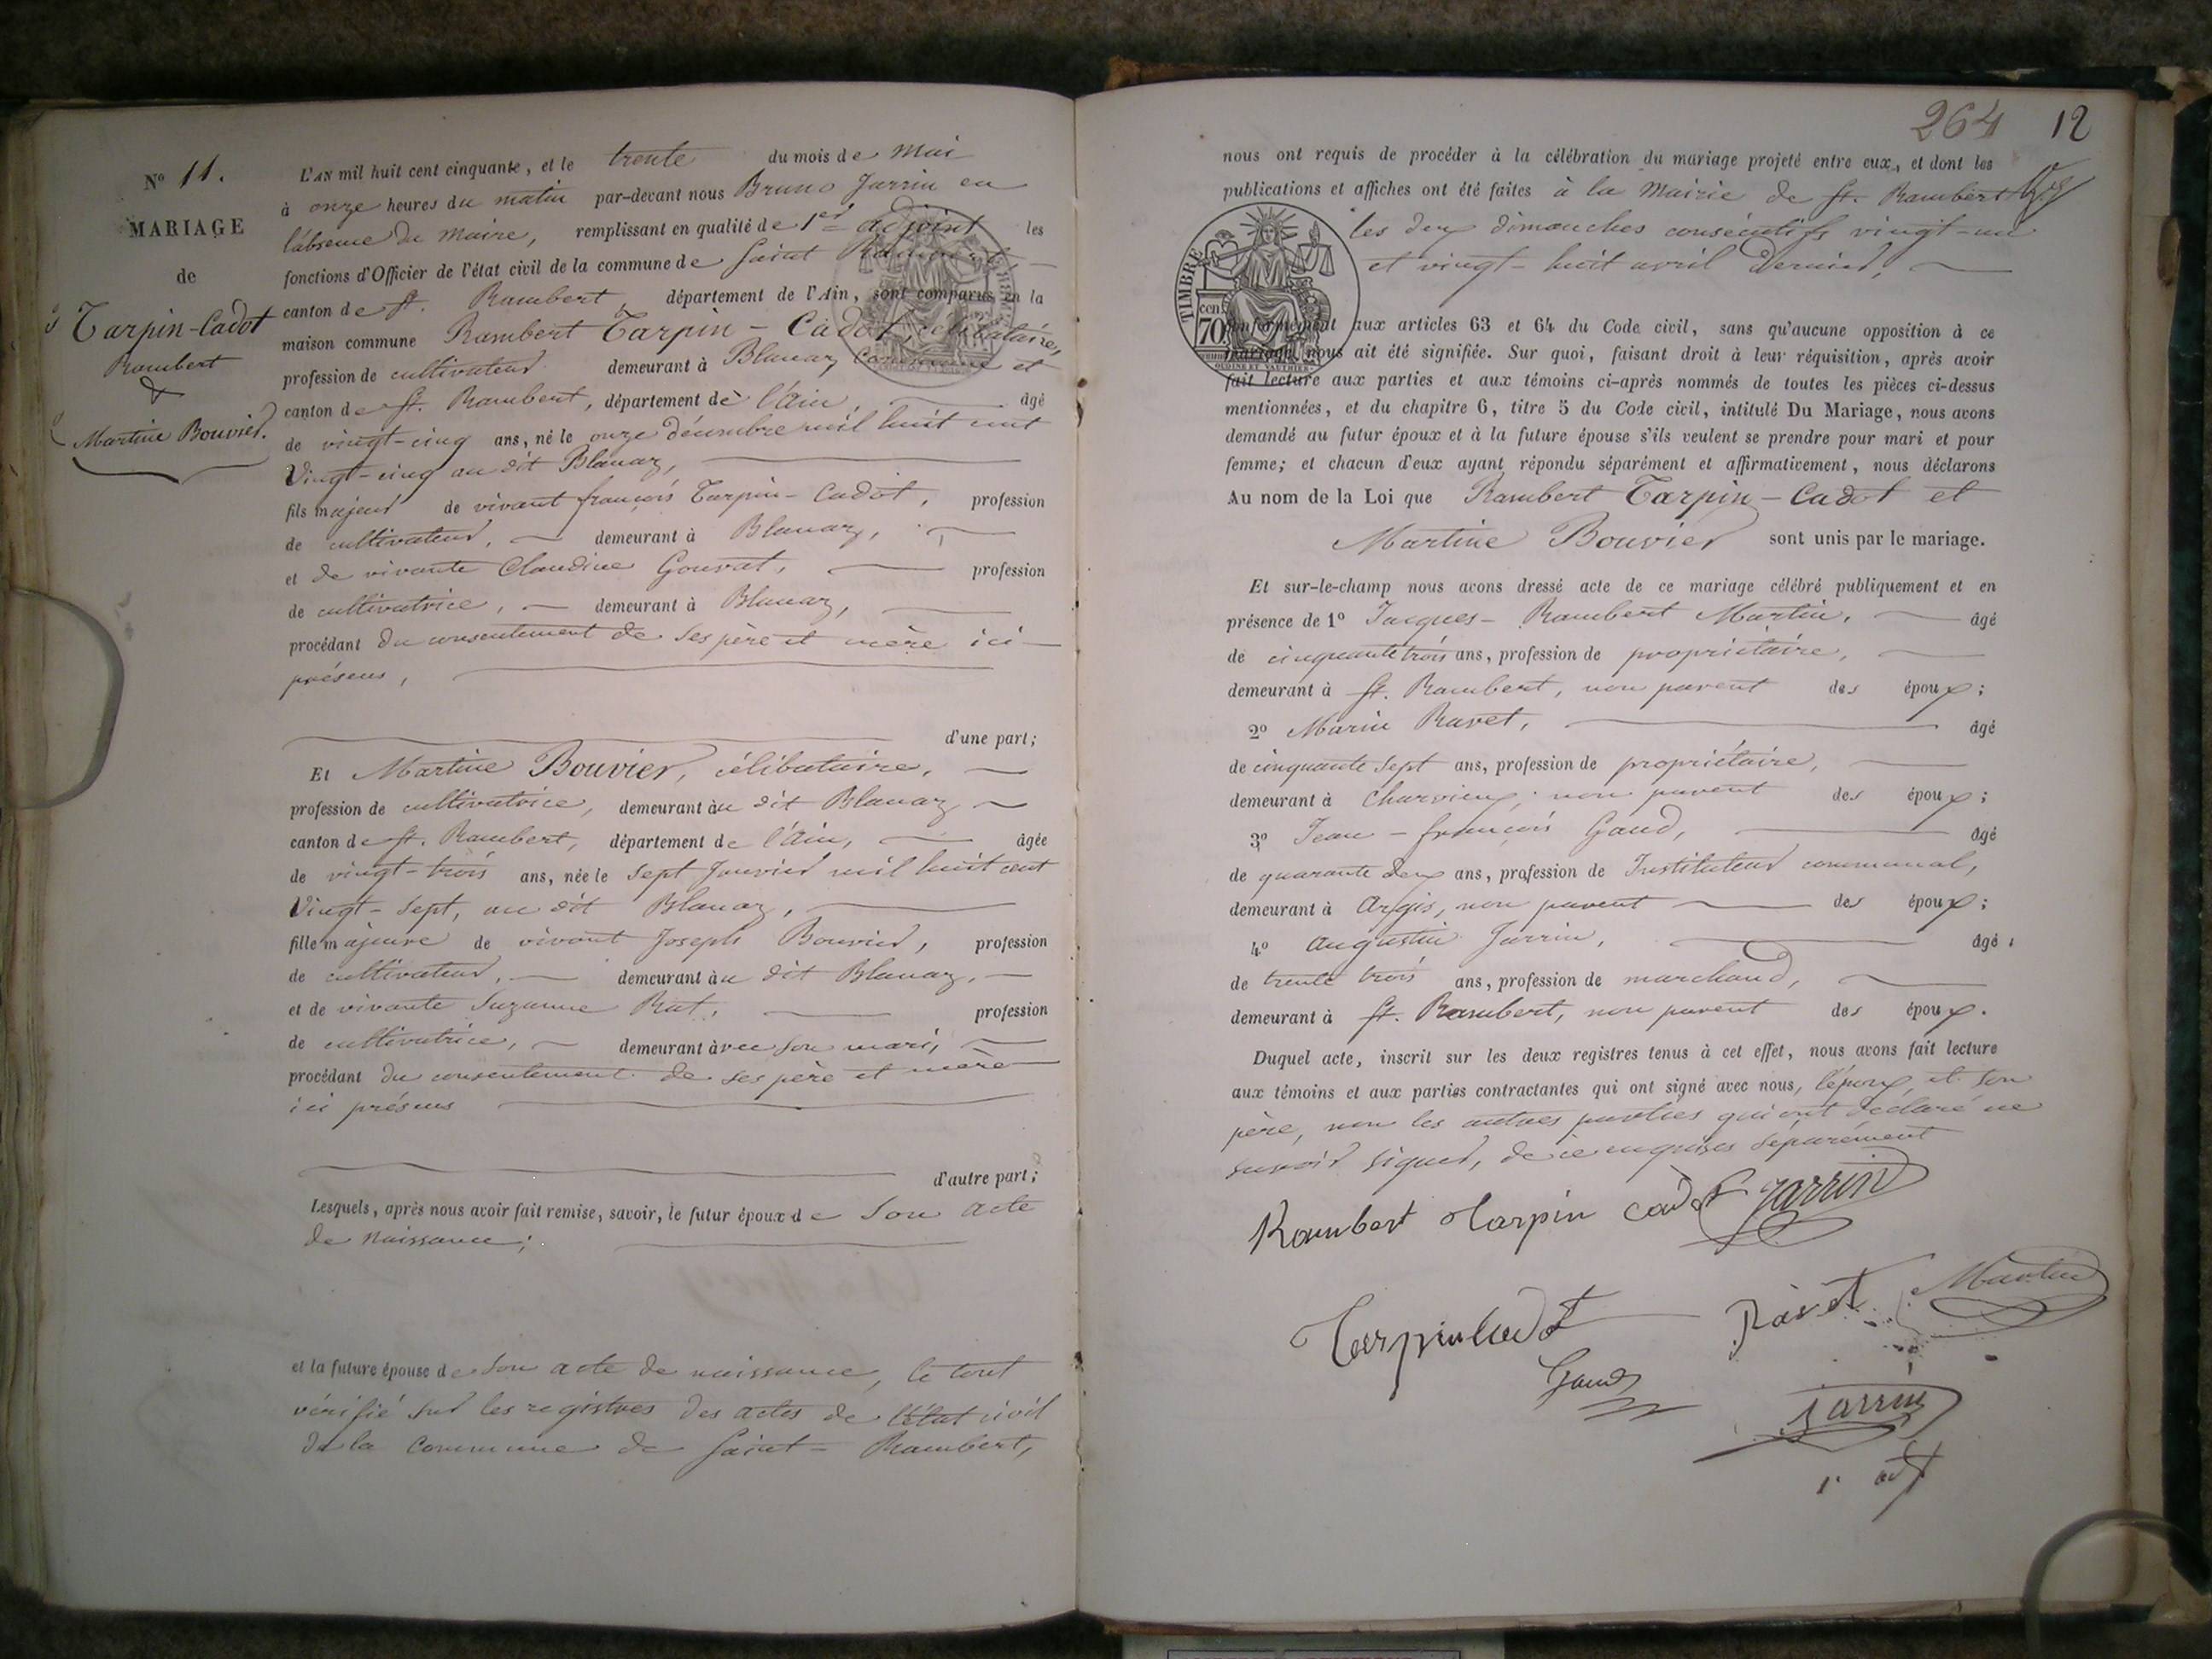 N° 11.
MARIAGE
de
Tarpin-Cadot
Rambert
&
Martine Bouvier.
L'AN mil huit cent cinquante, et le trente du mois de Mai
à onze heures du matin par-devant nous Bruno Jarrin en
l'absence du Maire, remplissant en qualité de 1er adjoint les
fonctions d'Officier de l'état civil de la commune de Saint Rambert,
canton de St. Rambert, département de l'Ain, sont comparus en la
maison commune Rambert Tarpin - Cadot, célibataire,
profession de cultivateur demeurant à Blanaz, Commune et
canton de St. Rambert, département de l'Ain, âgé
de vingt-cinq ans, né le onze décembre mil huit cent
Vingt-cinq au dit Blanaz,
fils majeur de vivant françois Tarpin-Cadot, profession
de cultivateur, demeurant à Blanaz,
et de vivante Claudine Gouvat, profession
de cultivatrice, demeurant à Blanaz,
procédant du consentement de ses père et mère ici
présens,
d'une part;
Et Martine Bouvier, célibataire,
profession de cultivatrice, demeurant àu dit Blanaz
canton de St. Rambert, département de l'Ain, âgée
de vingt-trois ans, née le sept Janvier mil huit cent
Vingt-sept, au dit Blanaz,
fille majeure de vivant Joseph Bouvier, profession
de cultivateur, demeurant àu dit Blanaz,
et de vivante Suzanne Rat, profession
de cultivatrice, demeurant àvec son mari,
procédant du consentement de ses père et mère
ici présens
d'autre part;
Lesquels, après nous avoir fait remise, savoir, le futur époux de son acte
de naissance;
et la future épouse de son acte de naissance, le tout
vérifié sur les registres des actes de l'état civil
de la Commune de Saint-Rambert,
264 12
nous ont requis de procéder à la célébration du mariage projeté entre eux, et dont les
publications et affiches ont été faites à la Mairie de St. Rambert
les deux dimanches consécutifs vingt-un
et vingt-huit avril dernier,
TIMBRE
cen
70
OUDINE ET VAUTHIER
conformément aux articles 63 et 64 du Code civil, sans qu'aucune opposition à ce
mariage nous ait été signifiée. Sur quoi, faisant droit à leur réquisition, après avoir
fait lecture aux parties et aux témoins ci-après nommés de toutes les pièces ci-dessus
mentionnées, et du chapitre 6, titre 5 du Code civil, intitulé Du Mariage, nous avons
demandé au futur époux et à la future épouse s'ils veulent se prendre pour mari et pour
femme; et chacun d'eux ayant répondu séparément et affirmativement, nous déclarons
Au nom de la Loi que Rambert Tarpin-Cadot et
Martine Bouvier sont unis par le mariage.
Et sur-le-champ nous avons dressé acte de ce mariage célébré publiquement et en
présence de 1° Jacques-Rambert Martin, âgé
de cinquante trois ans, profession de propriétaire,
demeurant à St. Rambert, non parent des époux;
2° Marin Ravet, âgé
de cinquante sept ans, profession de propriétaire,
demeurant à Charvieux, non parent des époux;
3° Jean-françois Gaud, âgé
de quarante deux ans, profession de Instituteur communal,
demeurant à Argis, non parent des époux;
4° Augustin Jarrin, âgé
de trente trois ans, profession de marchand,
demeurant à St. Rambert, non parent des époux.
Duquel acte, inscrit sur les deux registres tenus à cet effet, nous avons fait lecture
aux témoins et aux parties contractantes qui ont signé avec nous, l'époux et son
père, non les autres parties qui ont déclaré ne
savoir signer, de ce enquises séparément
Rambert Tarpin Cadot Jarrin
Terpin Cadot Ravet Martin
Gaud
Jarrin
1er adj